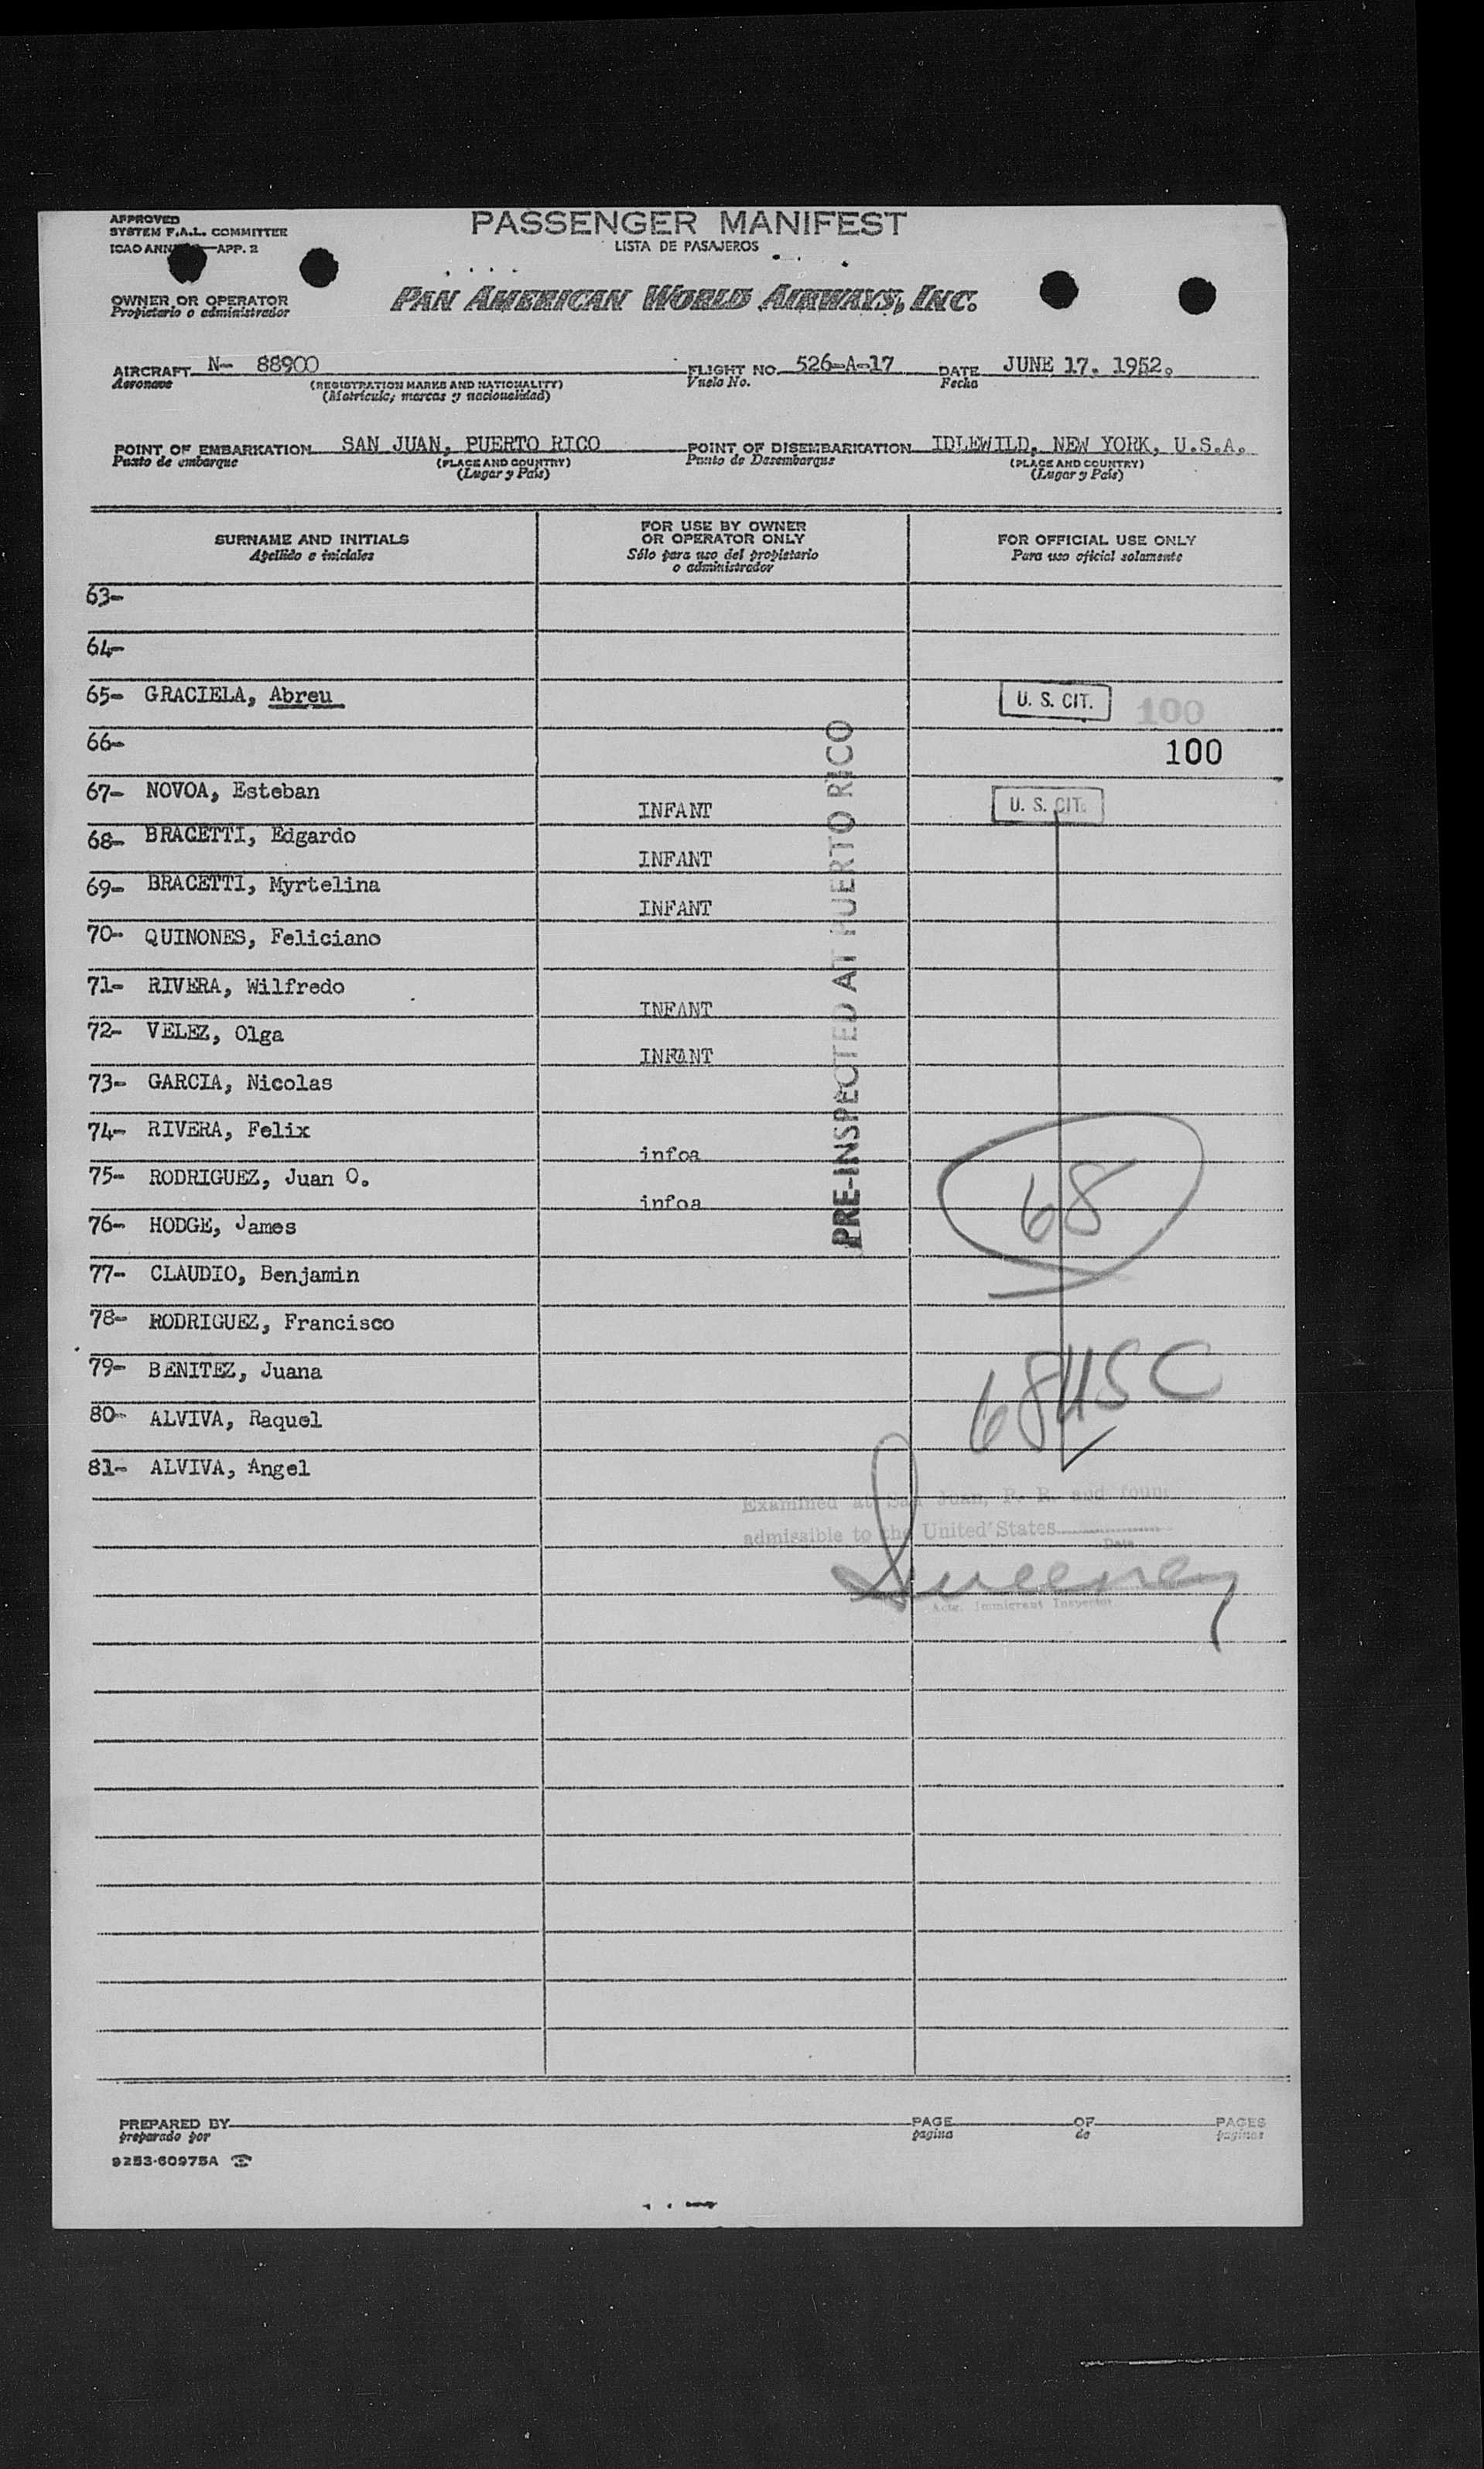 APPROVED
SYSTEM F.A.L. COMMITTEE
ICAO ANN APP. 2
PASSENGER MANIFEST
LISTA DE PASAJEROS
OWNER OR OPERATOR
Propietario o administrador
PAN AMERICAN WORLD AIRWAYS, INC.
AIRCRAFT N- 88900 FLIGHT NO. 526-A-17 DATE JUNE 17. 1952.
Aeronave (REGISTRATION MARKS AND NATIONALITY) Vuelo No. Fecha
(Matricula, marcas y nacionalidad)
POINT OF EMBARKATION SAN JUAN, PUERTO RICO POINT OF DISEMBARKATION IDLEWILD, NEW YORK, U.S.A.
Punto de embarque (PLACE AND COUNTRY) Punto de Desembarque (PLACE AND COUNTRY)
(Lugar y País) (Lugar y País)
SURNAME AND INITIALS
Apellido e iniciales
FOR USE BY OWNER
OR OPERATOR ONLY
Sólo para uso del propietario
o administrador
FOR OFFICIAL USE ONLY
Para uso oficial solamente
63-
64-
65- GRACIELA, Abreu U. S. CIT. 100
66- 100
67- NOVOA, Esteban INFANT U. S. CIT.
68- BRACETTI, Edgardo INFANT
69- BRACETTI, Myrtelina INFANT
70- QUINONES, Feliciano
71- RIVERA, Wilfredo INFANT
72- VELEZ, Olga INFANT
73- GARCIA, Nicolas
74- RIVERA, Felix infoa
75- RODRIGUEZ, Juan O. infoa
76- HODGE, James
77- CLAUDIO, Benjamin
78- RODRIGUEZ, Francisco
79- BENITEZ, Juana
80- ALVIVA, Raquel
81- ALVIVA, Angel
PRE-INSPECTED AT PUERTO RICO
68
68 USC
Examined at San Juan, P. R. and foun
admissible to the United States
Date
Sweeney
Actg. Immigrant Inspector
PREPARED BY PAGE OF PAGES
preparado por pagina de paginas
9253-60975A